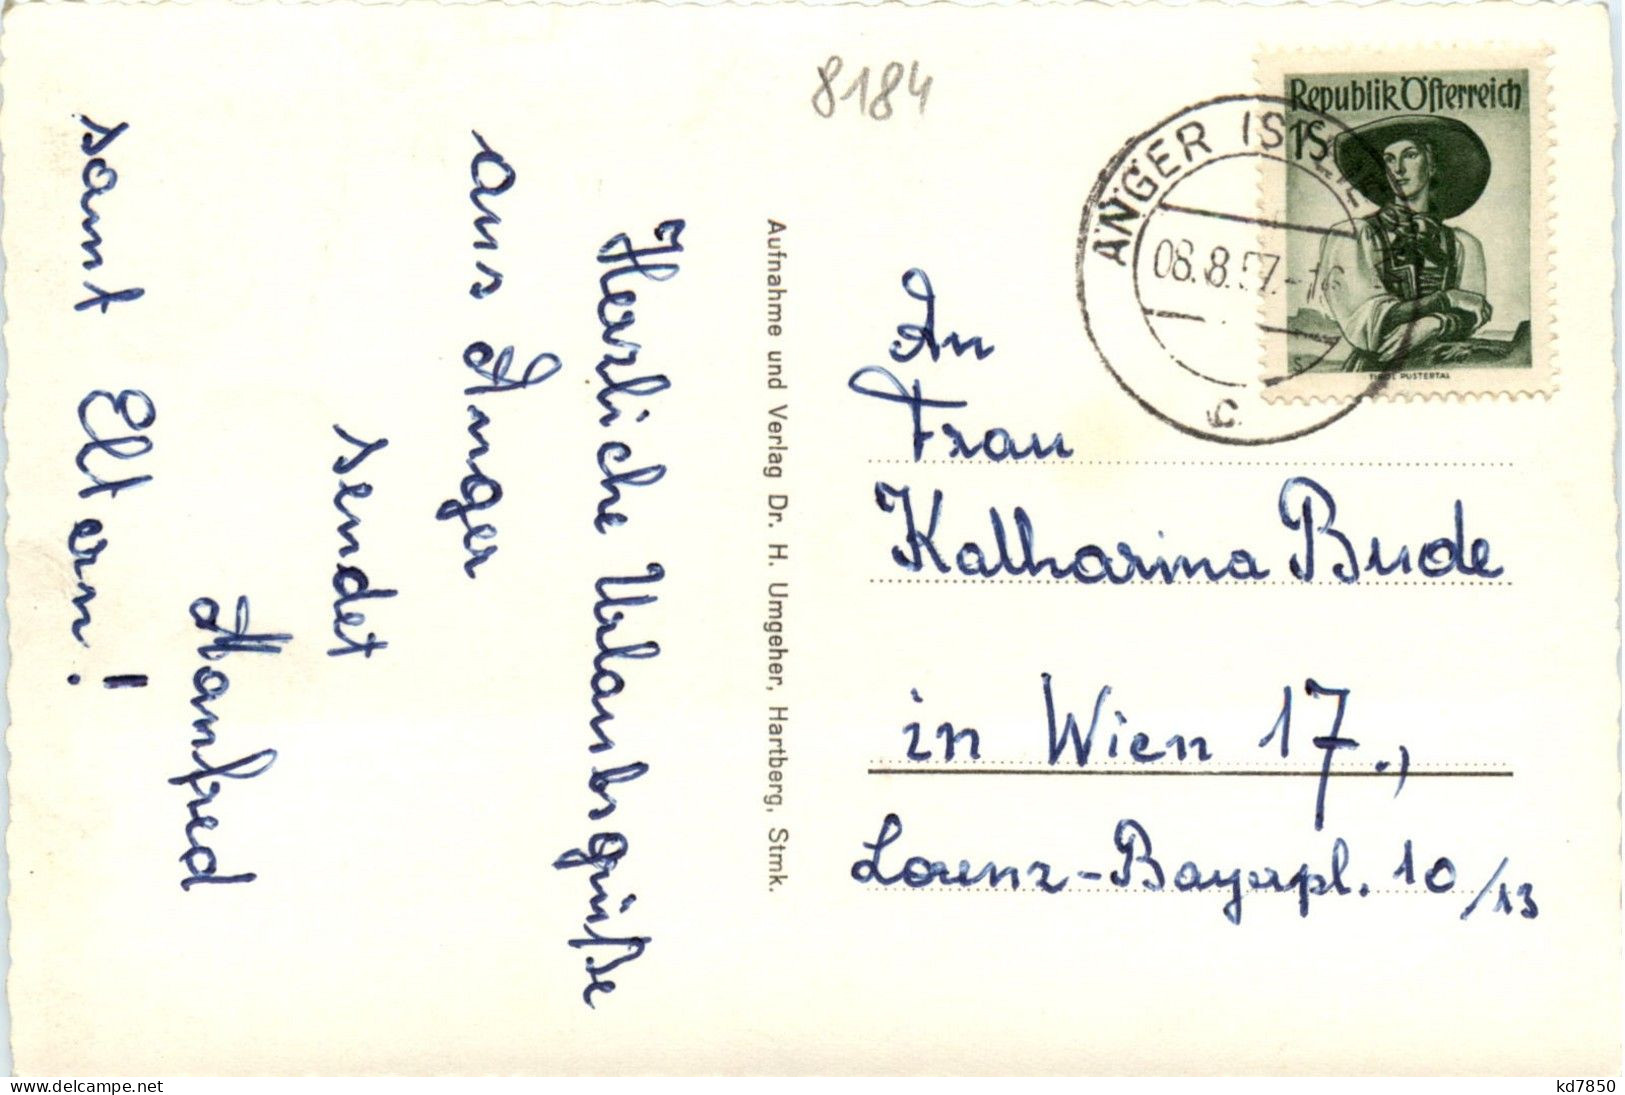 8184
Republik Österreich
1S
TIROL PUSTERTAL
ANGER
08.8.57.-16
c
Herzliche Urlaubsgrüße
aus Anger
sendet
Manfred
samt Eltern!
Aufnahme und Verlag Dr. H. Umgeher, Hartberg, Stmk.
An
Frau
Katharina Bude
in Wien 17.,
Lorenz-Bayerpl. 10/13
www.delcampe.net
kd7850